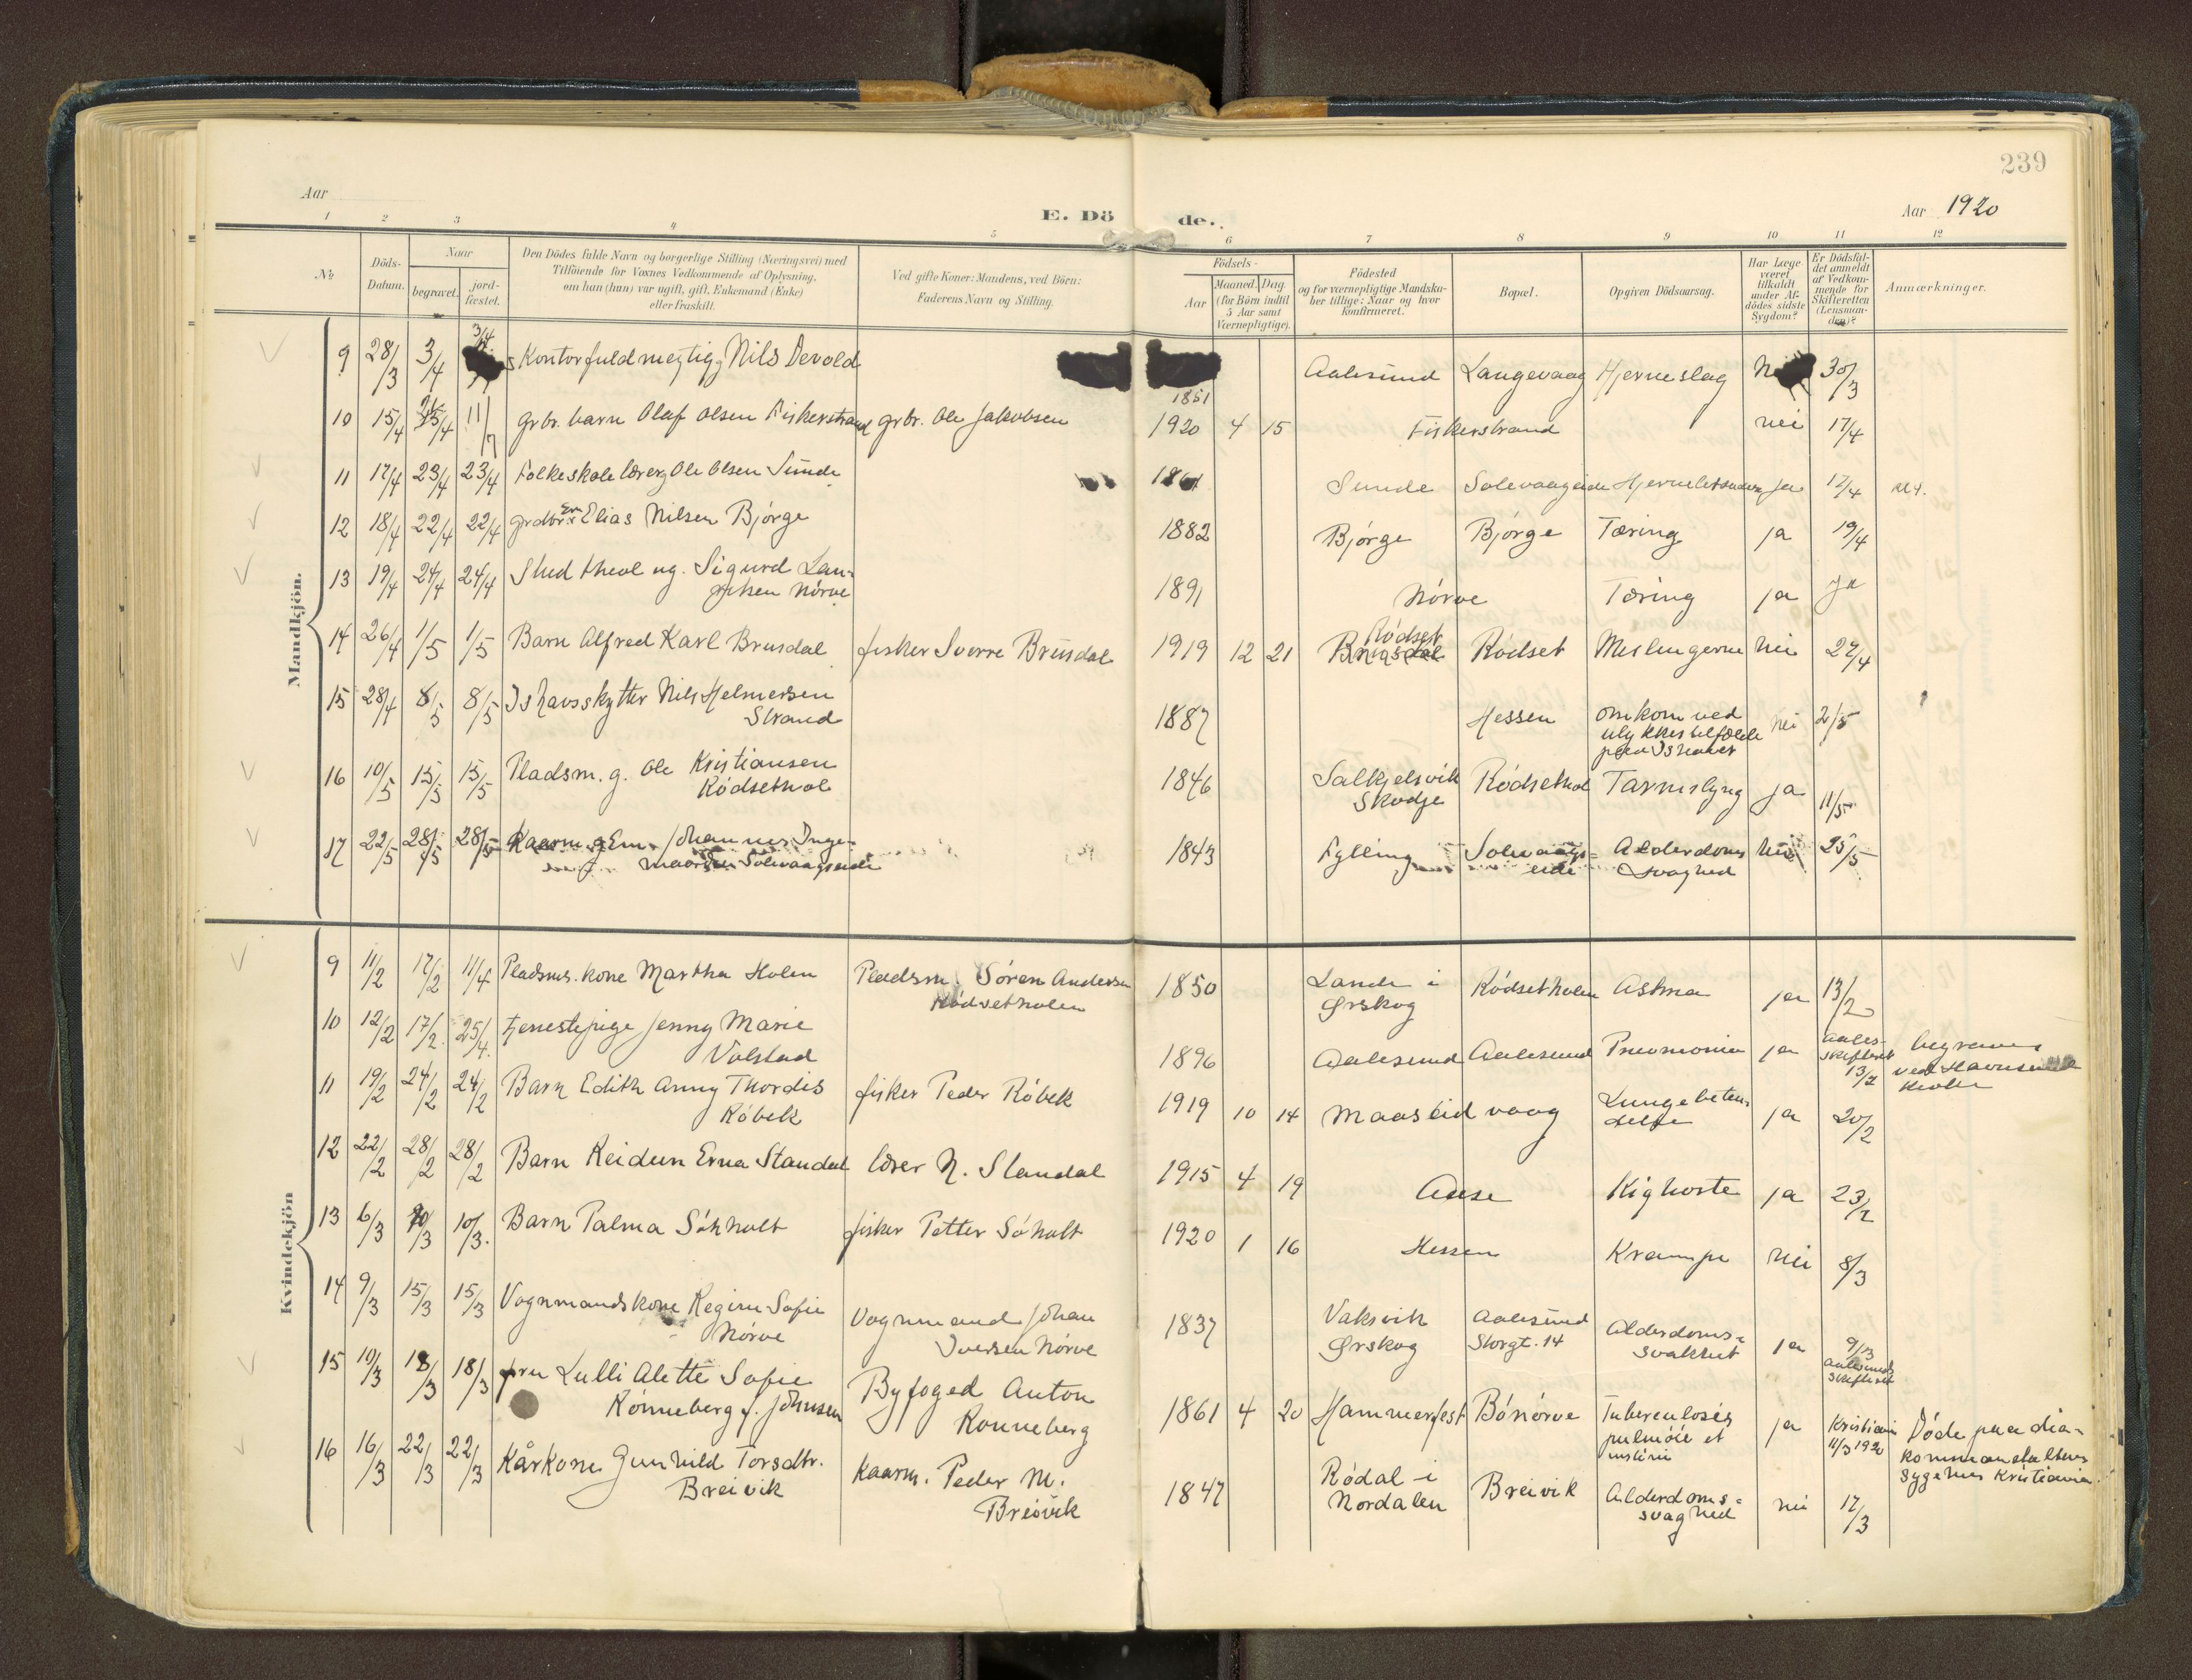 239
Aar
E. Dö de.
Aar 1920
1 2 3 4 5 6 7 8 9 10 11 12
No
Döds-Datum.
Naar
begravet.
jord-fæstet.
Den Dödes fulde Navn og borgerlige Stilling (Næringsvei) med
Tilföiende for Voxnes Vedkommende af Oplysning,
om han (hun) var ugift, gift, Enkemand (Enke)
eller fraskilt.
Ved gifte Koner: Mandens, ved Börn:
Faderens Navn og Stilling.
Födsels-
Aar
Maaned. Dag.
(for Börn indtil
5 Aar samt
Værnepligtige).
Födested
og for værnepligtige Mandska-
ber tillige: Naar og hvor
Konfirmeret.
Bopæl.
Opgiven Dödsaarsag.
Har Læge
været
tilkaldt
under Af-
dödes sidste
Sygdom?
Er Dödsfal-
det anmeldt
af Vedkom-
mende for
Skifteretten
(Lensman-
den)?
Anmærkninger.
Mandkjön.
9 28/3 3/4 3/4 Kontorfuldmegtig Nils Devold 1851 Aalesund Langevaag Hjerneslag 30/3
10 15/4 11/7 grbr. barn Olaf Olsen Fiskerstrand grbr. Ole Jakobsen 1920 4 15 Fiskerstrand nei 17/4
11 17/4 23/4 23/4 Folkeskolelærer Ole Olsen Sunde Sunde Solevaagseide ja 17/4
12 18/4 22/4 22/4 grdbr. Em Elias Nilsen Bjørge 1882 Bjørge Bjørge Tæring ja 19/4
13 19/4 24/4 24/4 Stud theol ug. Sigurd Lau-
ritsen Nørve 1891 Nørve Tæring ja ja
14 26/4 1/5 1/5 Barn Alfred Karl Brusdal fisker Sverre Brusdal 1919 12 21 Brusdal Rødset Rødset Meslingerne nei 27/4
15 28/4 8/5 8/5 Ishavsskytter Nils Helmersen
Strand 1887 Hessen omkom ved
ulykkestilfælde
paa Ishavet nei 2/5
16 10/5 15/5 15/5 Pladsm. g. Ole Kristiansen
Rødsethol 1846 Salkjelsvik
Skodje Rødsethol Tarmslyng ja 11/5
17 22/5 28/5 28/5 Kaarm. g Em. Johannes Inge-
maarsen Solevaagseide 1843 Fylling Solevaags-
eide Alderdoms
svaghed nei 25/5
Kvindekjön
9 11/2 17/2 11/4 Pladsms. kone Martha Holen Pladsm. Søren Andersen
Rødsetholen 1850 Lande i
Ørskog Rødsetholen Astma ja 13/2
10 12/2 17/2 25/4 Tjenestepige Jenny Marie
Valstad 1896 Aalesund Aalesund Pneumonia ja Aales.
skifteret
13/2 begraves
ved
kirke
11 19/2 24/2 24/2 Barn Edith Anny Thordis
Røbek fisker Peder Røbek 1919 10 14 Maaseidvaag Lungebeten-
delse ja 20/2
12 22/2 28/2 28/2 Barn Reidun Erna Standal lærer N. Standal 1915 4 19 Aase Kighoste ja 23/2
13 6/3 10/3 10/3. Barn Palma Søhholt fisker Petter Søholt 1920 1 16 Hessen Krampe nei 8/3
14 9/3 15/3 15/3 Vognmandskone Regine Sofie
Nørve Vognmand Johan
Iversen Nørve 1837 Vaksvik
Ørskog Aalesund
Storgt. 14 Alderdoms-
svakhet ja 9/3
Aalesunds
skifteret
15 10/3 18/3 18/3 fru Lulli Alette Sofie
Rønneberg f. Johnsen Byfoged Anton
Ronneberg 1861 4 20 Hammerfest Bónørve Tuberculosis
pulmon et
ja Kristiania
11/3 1920 Døde paa dia-
konnanstaltens
sygehus Kristiania.
16 16/3 22/3 22/3 Kårkone Gunhild Torsdtr.
Breivik Kaarm. Peder M.
Breivik 1847 Rødal i
Nordalen Breivik Alderdoms-
svaghed nei 17/3